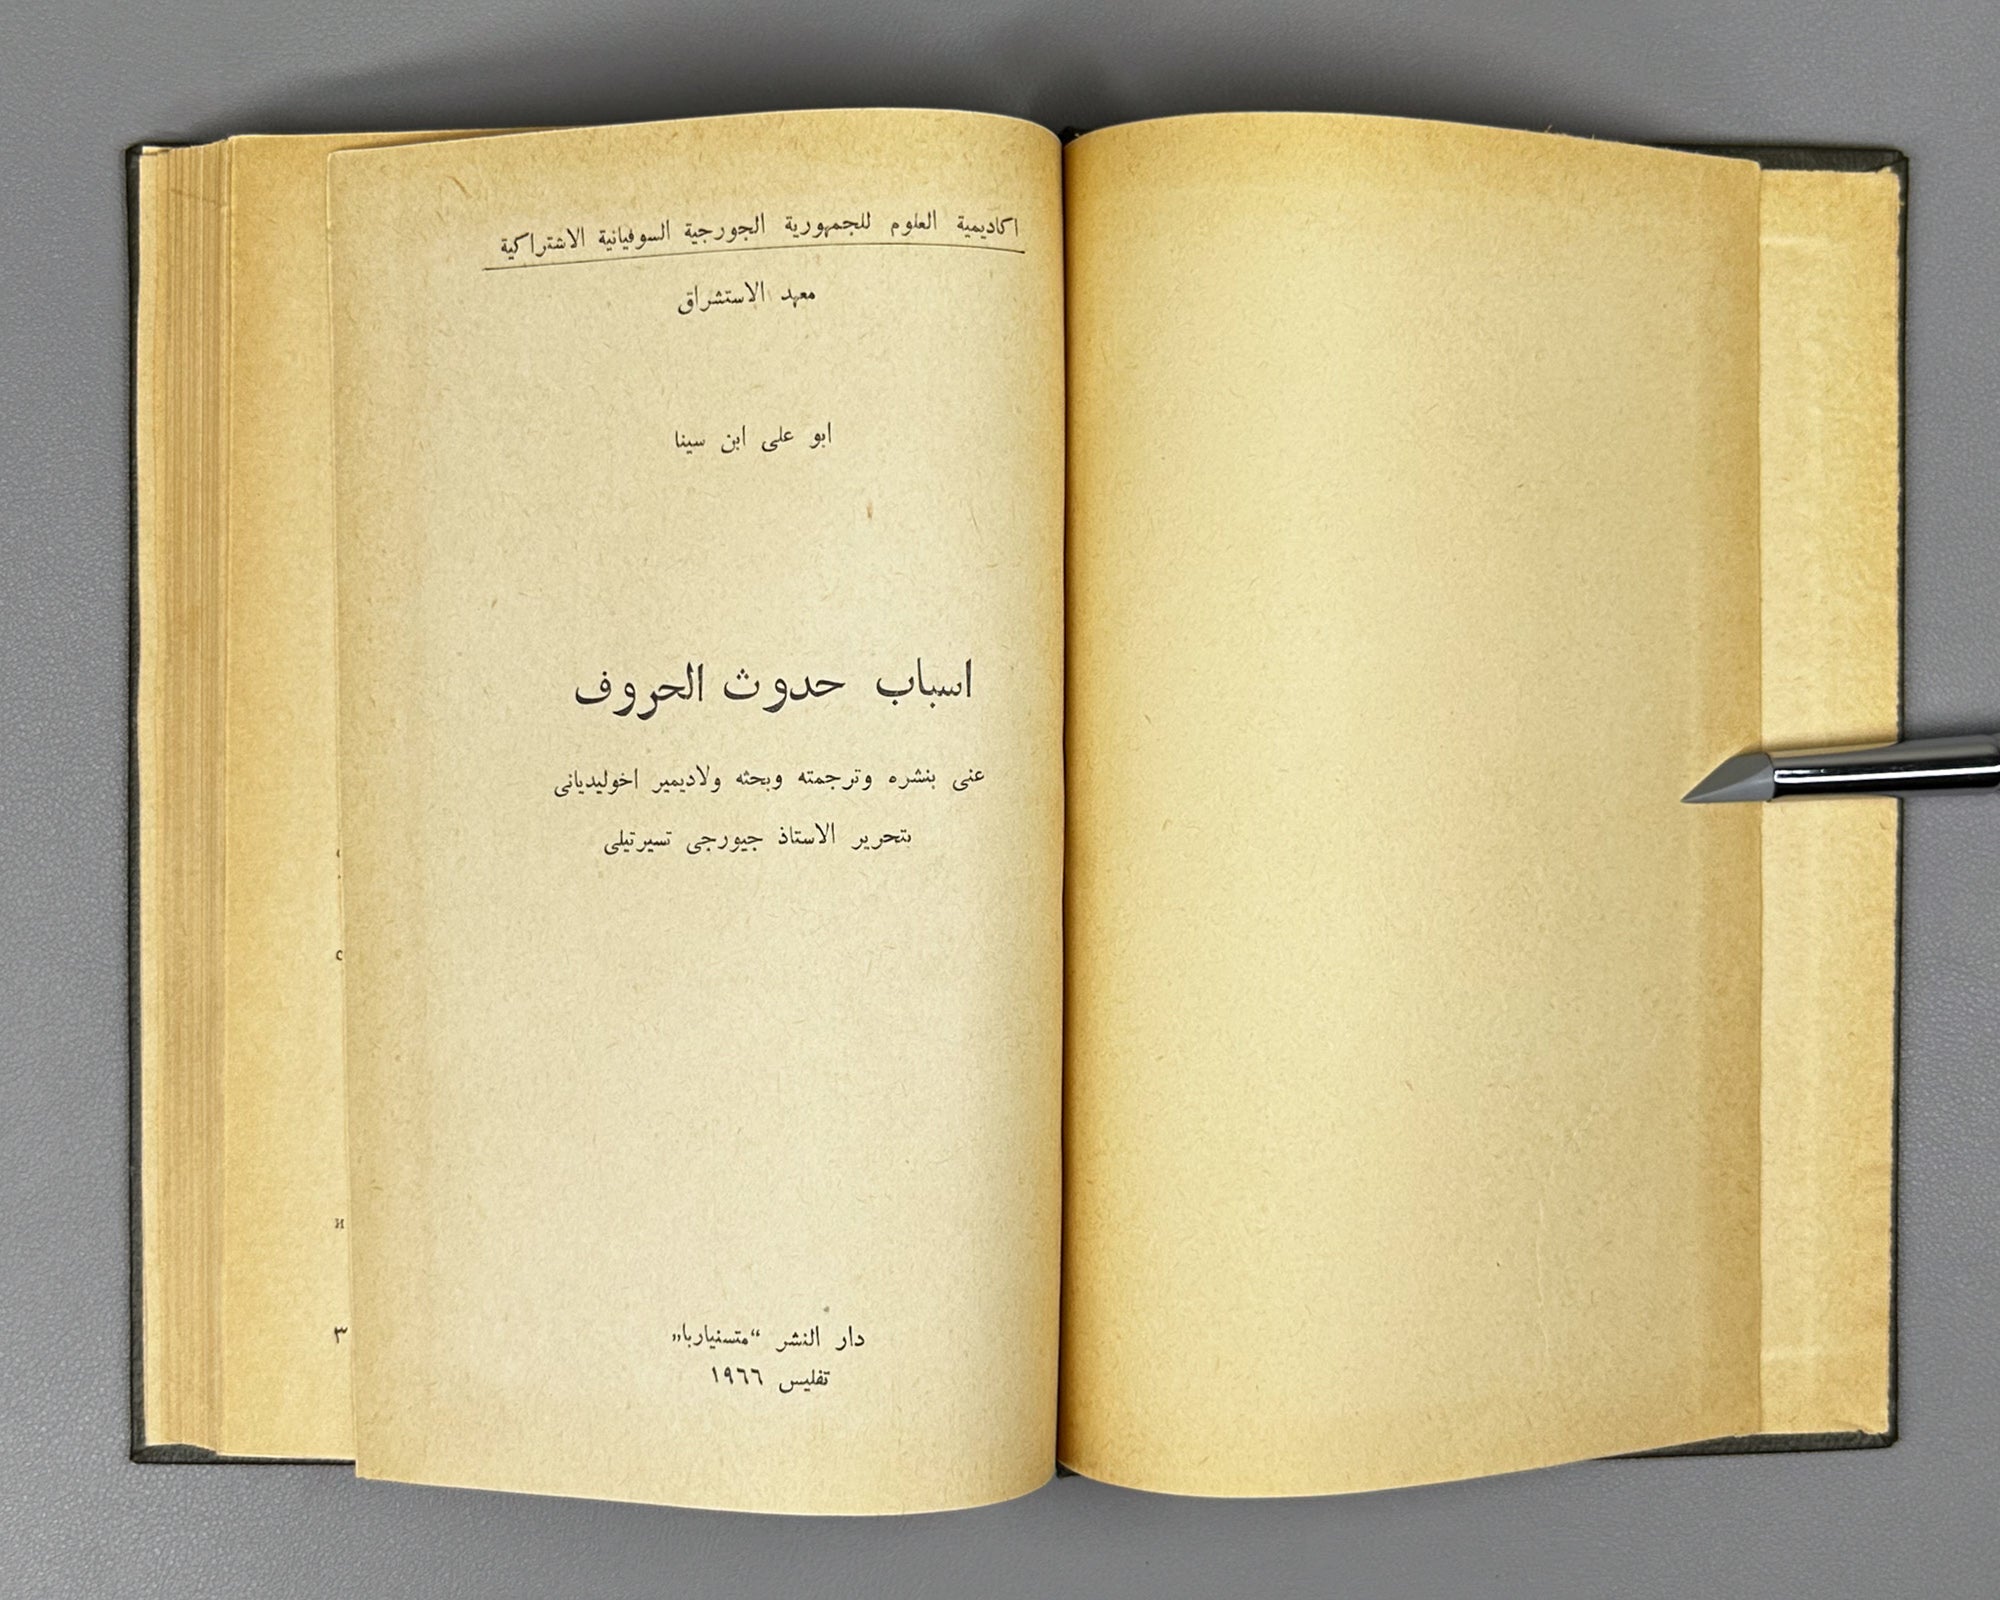 اكاديمية العلوم للجمهورية الجورجية السوفيانية الاشتراكية
معهد الاستشراق
ابو على ابن سينا
اسباب حدوث الحروف
عنى بنشره وترجمته وبحثه ولاديمير اخوليديانى
بتحرير الاستاذ جيورجى تسيرتيلى
دار النشر “متسنياربا”
تفليس ١٩٦٦
с
и
٣